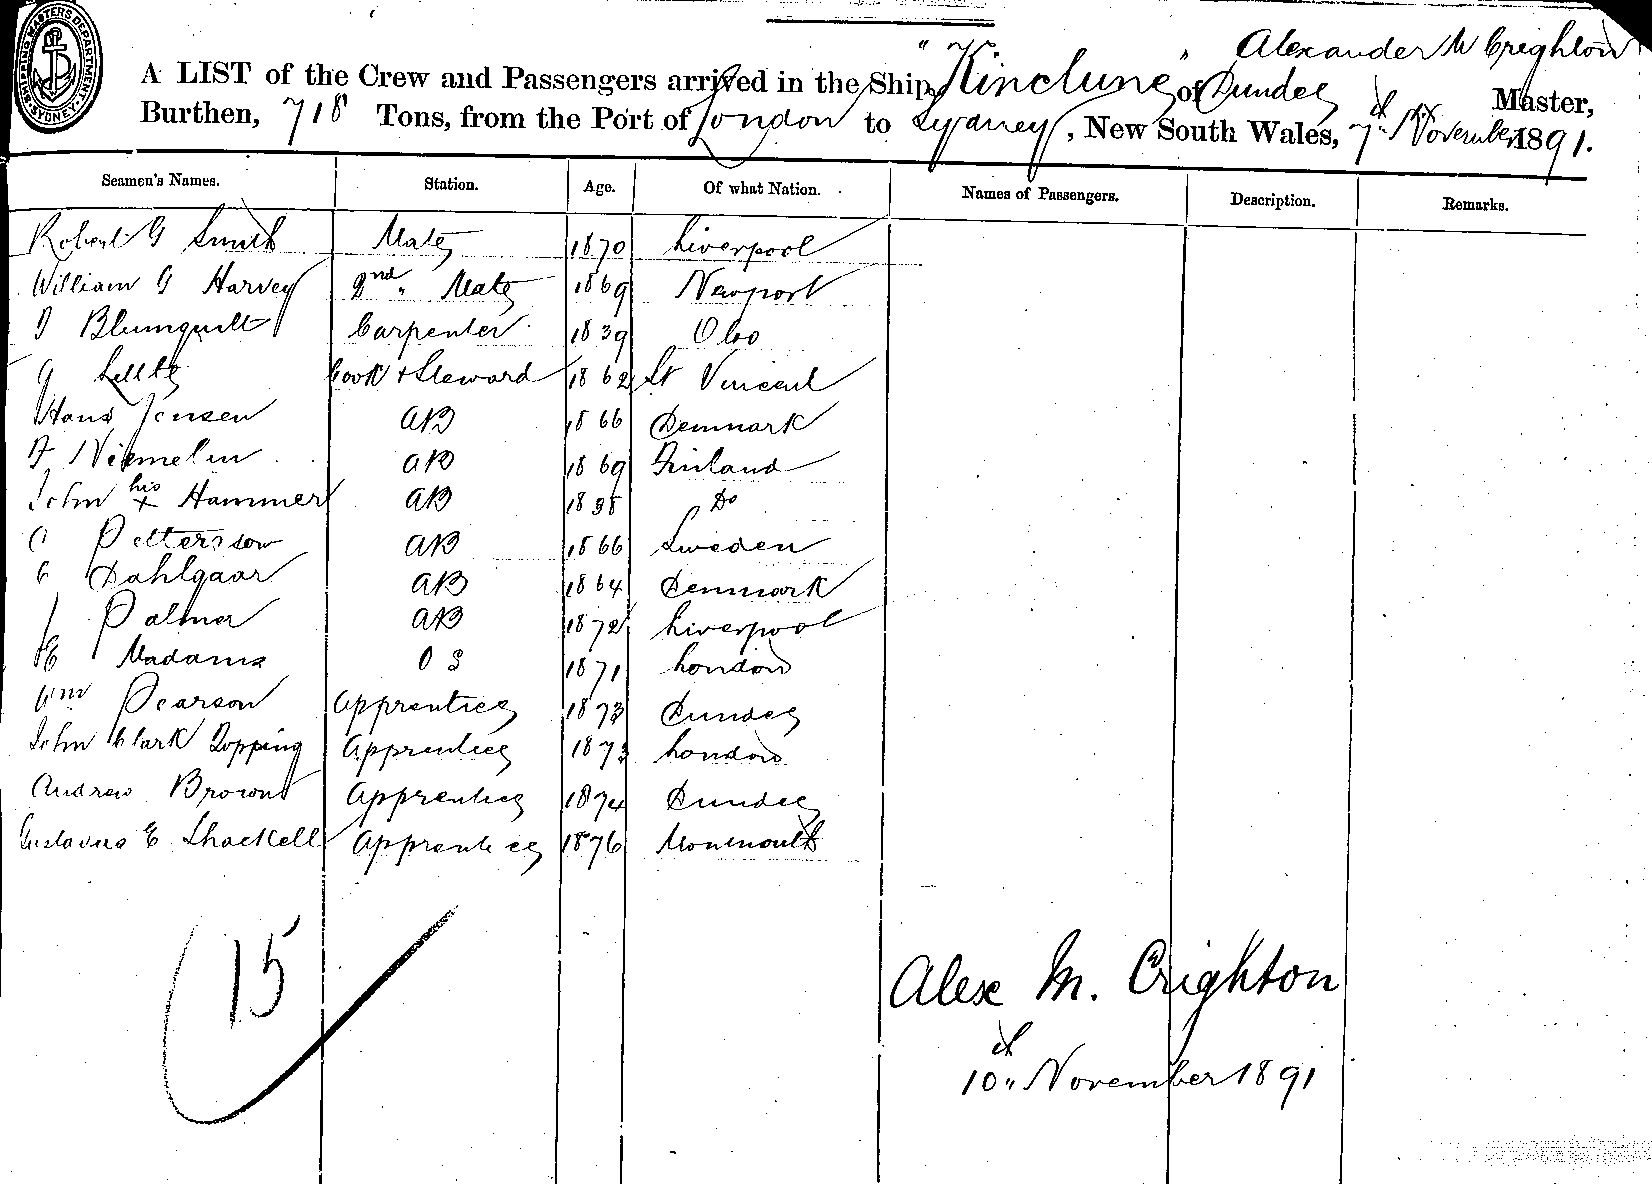 SHIPPING MASTERS DEPARTMENT SYDNEY
Alexander M Crighton
A LIST of the Crew and Passengers arrived in the Ship "Kinclune" of Dundee Master,
Burthen, 718 Tons, from the Port of London to Sydney, New South Wales, 7th November 1891.
Seamen's Names. Station. Age. Of what Nation. Names of Passengers. Description. Remarks.
Robert G Smith Mate 1870 Liverpool
William G Harvey 2nd Mate 1869 Newport
Blumquilt Carpenter 1839
G Cook & Steward 1862 St Vincent
Hans Jensen AB 1866 Denmark
Niemelin AB 1869 Finland
John his x Hammer AB Do
Pettersson AB 1866 Sweden
Dahlgaar AB 1864 Denmark
J Palmer AB 1872 Liverpool
Madams O S 1871 London
Wm Pearson Apprentice 1873 Dundee
John Clark Topping Apprentice 1873 London
Andrew Brown Apprentice 1874 Dundee
Gustavus E Shackell Apprentice 1876 Monmouth
15
Alex M. Crighton
10th November 1891